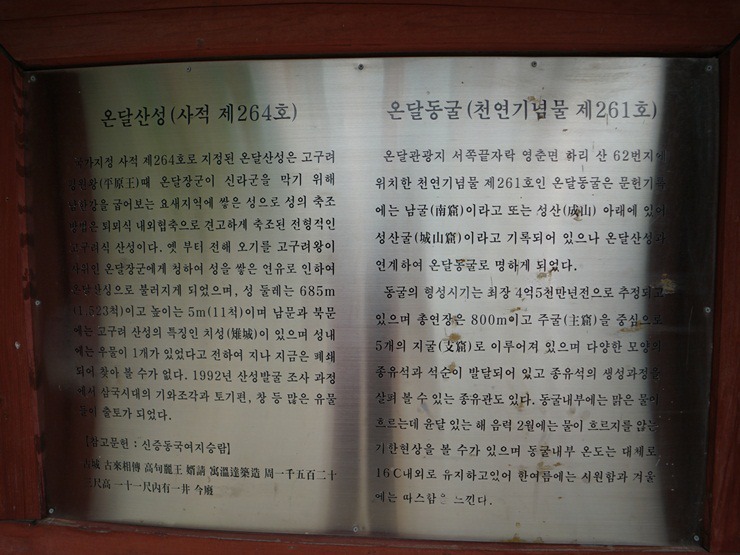 온달산성 (사적 제264호)
국가지정 사적 제264호로 지정된 온달산성은 고구려
평원왕(平原王)때 온달장군이 신라군을 막기 위해
남한강을 굽어보는 요새지역에 쌓은 성으로 성의 축조
방법은 퇴뫼식 내외협축으로 견고하게 축조된 전형적인
고구려식 산성이다. 옛 부터 전해 오기를 고구려왕이
사위인 온달장군에게 청하여 성을 쌓은 연유로 인하여
온달산성으로 불러지게 되었으며, 성 둘레는 685m
(1,523척)이고 높이는 5m(11척)이며 남문과 북문
에는 고구려 산성의 특징인 치성(雉城)이 있으며 성내
에는 우물이 1개가 있었다고 전하여 지나 지금은 폐쇄
되어 찾아 볼 수가 없다. 1992년 산성발굴 조사 과정
에서 삼국시대의 기와조각과 토기편, 창 등 많은 유물
들이 출토가 되었다.
【참고문헌 : 신증동국여지승람】
古城 古來相傳 高句麗王 婿請 寓溫達築造 周一千五百二十
三尺高 一十一尺內有一井 今廢
온달동굴 (천연기념물 제261호)
온달관광지 서쪽끝자락 영춘면 하리 산 62번지에
위치한 천연기념물 제261호인 온달동굴은 문헌기록
에는 남굴(南窟)이라고 또는 성산(成山) 아래에 있어
성산굴(城山窟)이라고 기록되어 있으나 온달산성과
연계하여 온달동굴로 명하게 되었다.
동굴의 형성시기는 최장 4억5천만년전으로 추정되고
있으며 총연장은 800m이고 주굴(主窟)을 중심으로
5개의 지굴(支窟)로 이루어져 있으며 다양한 모양의
종유석과 석순이 발달되어 있고 종유석의 생성과정을
살펴 볼 수 있는 종유관도 있다. 동굴내부에는 맑은 물이
흐르는데 윤달 있는 해 음력 2월에는 물이 흐르지를 않는
기한현상을 볼 수가 있으며 동굴내부 온도는 대체로
16C내외로 유지하고있어 한여름에는 시원함과 겨울
에는 따스함을 느낀다.